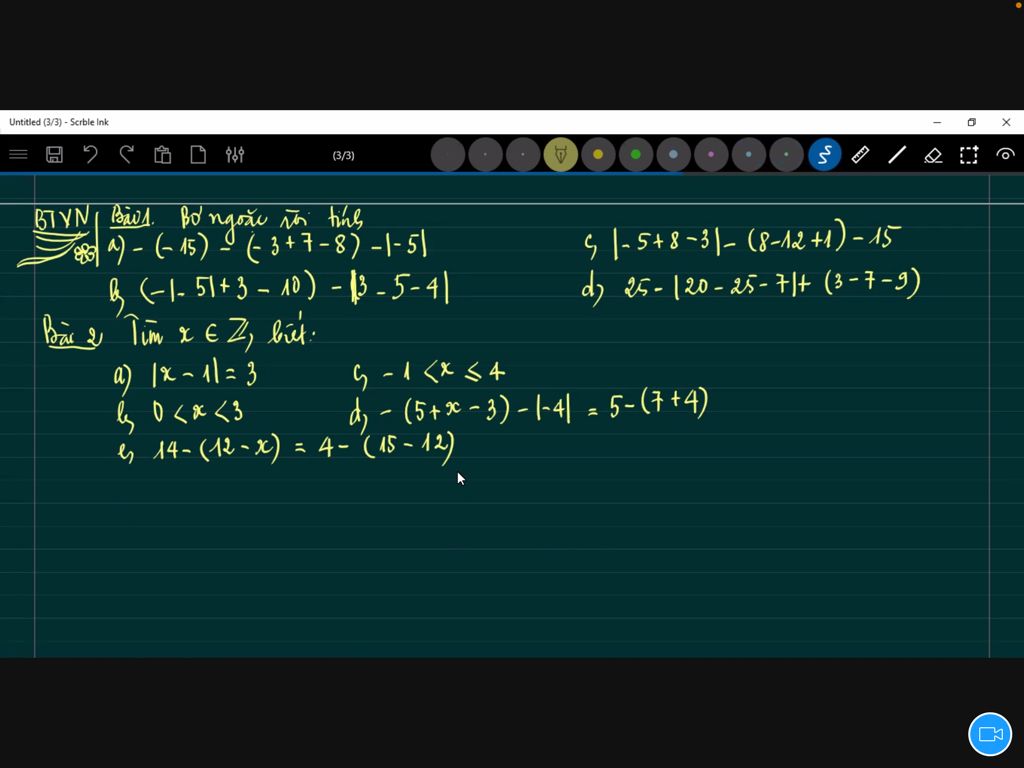 Untitled (3/3) - Scrble Ink
(3/3)
BTVN Bài 1. Bỏ ngoặc rồi tính
a) - (- 15) - (- 3 + 7 - 8) - |- 5|
c) |- 5 + 8 - 3| - (8 - 12 + 1) - 15
b) (- |- 5| + 3 - 10) - |3 - 5 - 4|
d) 25 - |20 - 25 - 7| + (3 - 7 - 9)
Bài 2 Tìm x ∈ ℤ, biết:
a) |x - 1| = 3
c) - 1 < x ≤ 4
b) 0 < x < 3
d) - (5 + x - 3) - |-4| = 5 - (7 + 4)
e) 14 - (12 - x) = 4 - (15 - 12)